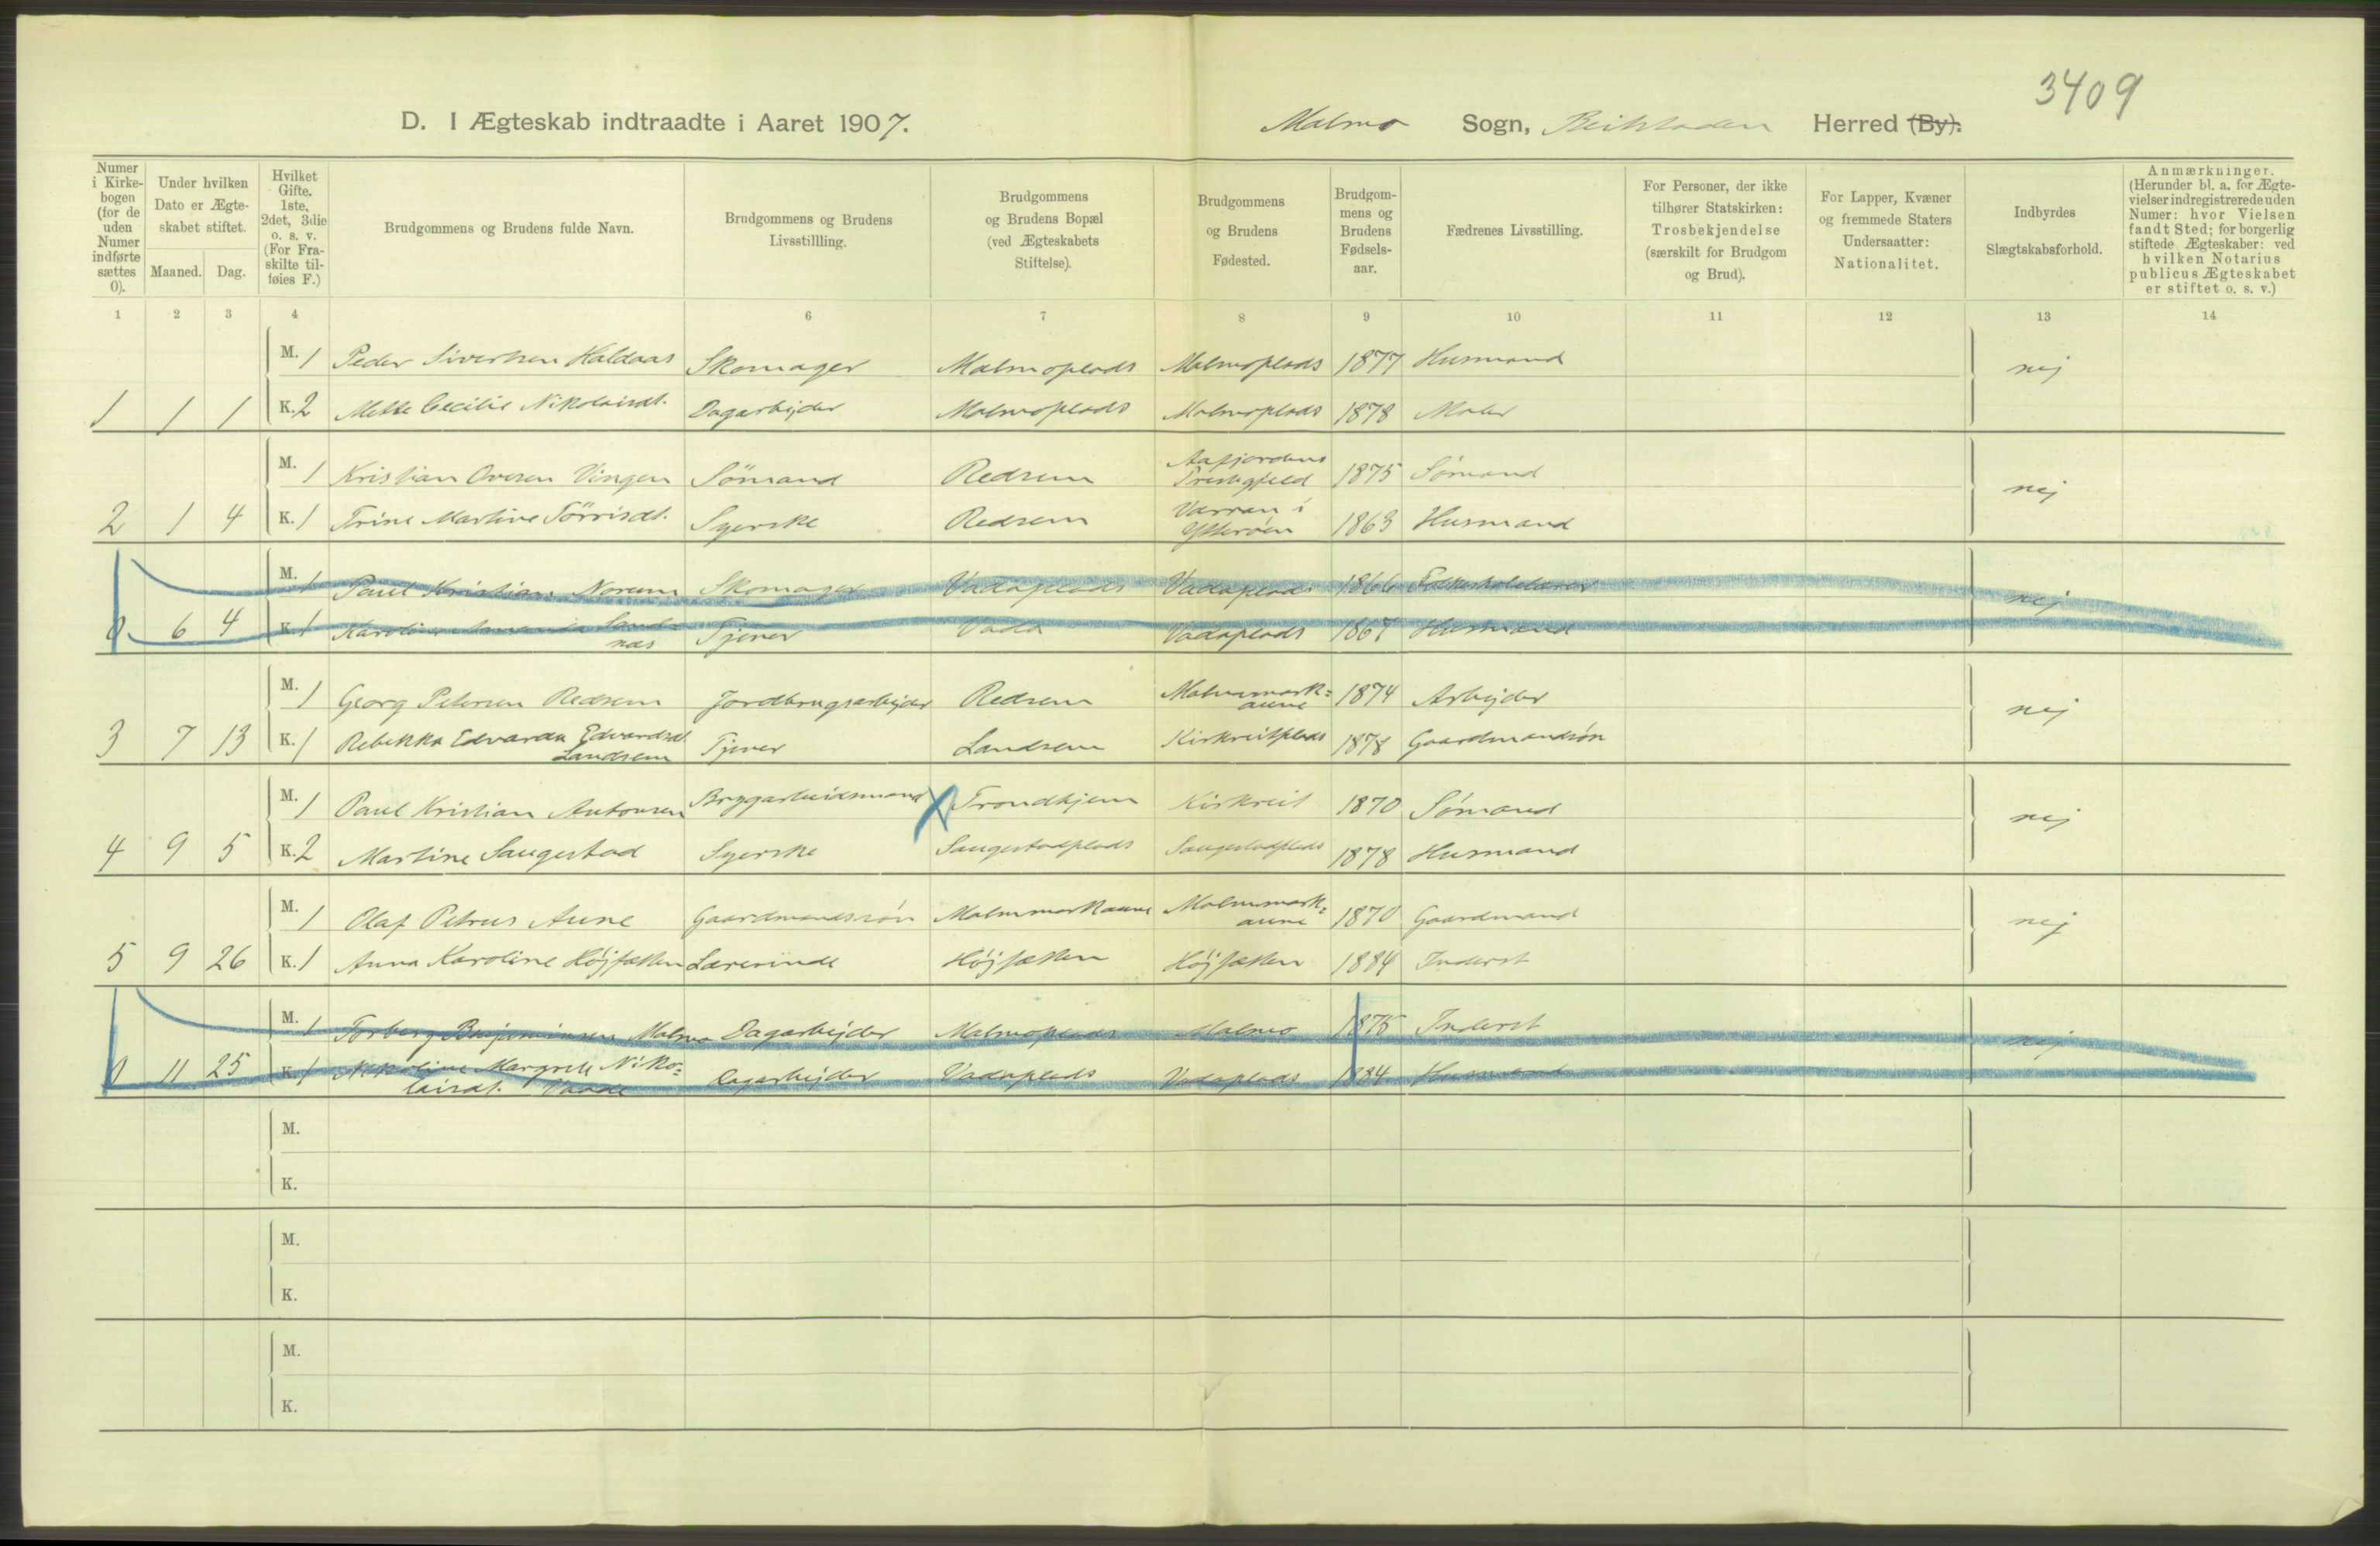 3409
D. I Ægteskab indtraadte i Aaret 1907. Malmo Sogn, Beitstaden Herred (By).
Numer i Kirkebogen (for de uden Numer indførte sættes 0).
Under hvilken Dato er Ægteskabet stiftet. Maaned. Dag.
Hvilket Gifte, 1ste, 2det, 3die o. s. v. (For Fraskilte tilføies F.)
Brudgommens og Brudens fulde Navn.
Brudgommens og Brudens Livsstillling.
Brudgommens og Brudens Bopæl (ved Ægteskabets Stiftelse).
Brudgommens og Brudens Fødested.
Brudgommens og Brudens Fødselsaar.
Fædrenes Livsstilling.
For Personer, der ikke tilhører Statskirken: Trosbekjendelse (særskilt for Brudgom og Brud).
For Lapper, Kvæner og fremmede Staters Undersaatter: Nationalitet.
Indbyrdes Slægtskabsforhold.
Anmærkninger. (Herunder bl. a. for Ægtevielser indregistrerede uden Numer: hvor Vielsen fandt Sted; for borgerlig stiftede Ægteskaber: ved hvilken Notarius publicus Ægteskabet er stiftet o. s. v.)
1 2 3 4 6 7 8 9 10 11 12 13 14
M. 1 Peder Sivertsen Haldaas Skomager Malmoplads Malmoplads 1877 Husmand nej
1 1 1 K. 2 Mette Cecilie Nikolaisdt. Dagarbejder Malmoplads Malmoplads 1878 Maler
M. 1 Kristian Ovesen Vingen Sömand Redsem Aafjordens Prestegjeld 1875 Sømand nej
2 1 4 K. 1 Trine Martine Törrisdt. Syerske Redsem Varran i Ytterøen 1863 Husmand
M. 1 Paul Kristian Norum Skomager Vadaplads Vadaplads 1866 Folkeskolelærer nej
0 6 4 K. 1 Karoline Tjener Vada Vadaplads 1867 Husmand
M. 1 Georg Petersen Redsem Jordbrugsarbejder Redsem Malmmark=aune 1874 Arbejder nej
3 7 13 K. 1 Rebekka Edvarda Edvardsdt. Landsem Tjener Landsem Kirkreitplads 1878 Gaardmandsøn
M. 1 Paul Kristian Antonsen Bryggarbeidsmand X Trondhjem Kirkreit 1870 Sómand nej
4 9 5 K. 2 Martine Saugestad Syerske Saugestadplads Saugestadplads 1878 Husmand
M. 1 Olaf Petrus Aune Gaardmandssön Malmmarkaune Malmmark=aune 1870 Gaardmand nej
5 9 26 K. 1 Anna Karoline Höjsætten Lærerinde Höjsætten Höjsætten 1884 Inderst
M. 1 Torberg Benjaminsen Malmo Dagarbejder Malmoplads Malmo 1875 Inderst nej
0 11 25 K. 1 Nikoline Margrete Niko=laisdt. Vaade Dagarbejder Vadaplads Vadaplads 1884 Husmand
M.
K.
M.
K.
M.
K.